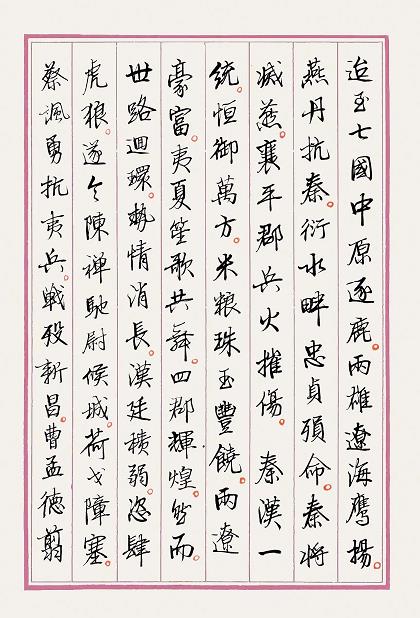 迨至七國中原逐鹿。兩雄遼海鷹揚。
燕丹抗秦。衍水畔忠貞殞命。秦將
滅燕。襄平郡兵火摧傷。秦漢一
統。恒御萬方。米粮珠玉豐饒。兩遼
豪富。夷夏笙歌共舞。四郡輝煌。然而
世路迴環。勢情消長。漢廷積弱。恣肆
虎狼。遂令陳禪馳尉候城。荷戈障塞。
蔡諷勇抗夷兵。戰歿新昌。曹孟德翦